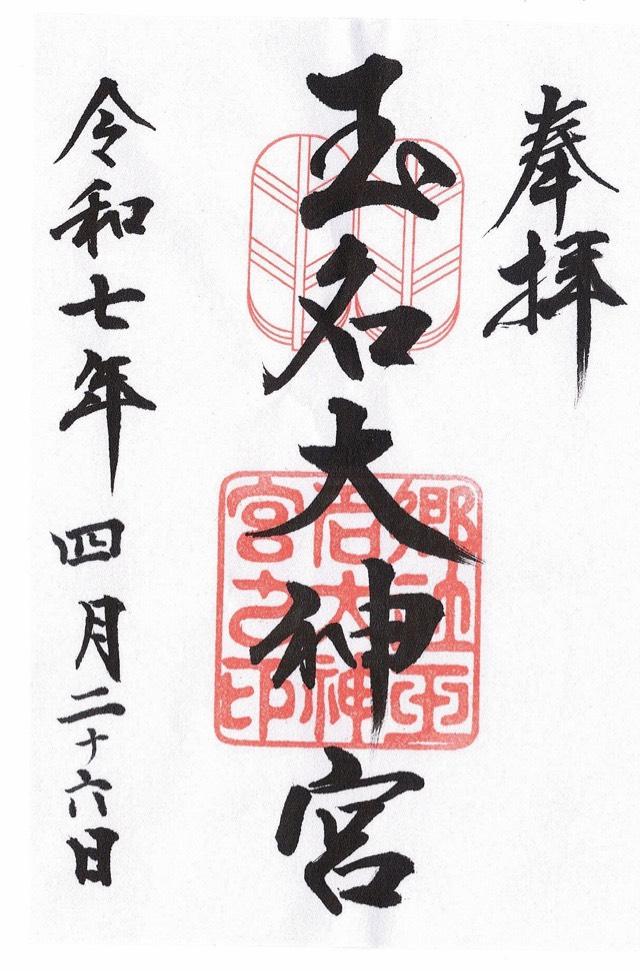 奉拝
玉名大神宮
郷社玉
名大神
宮之印
令和七年四月二十六日